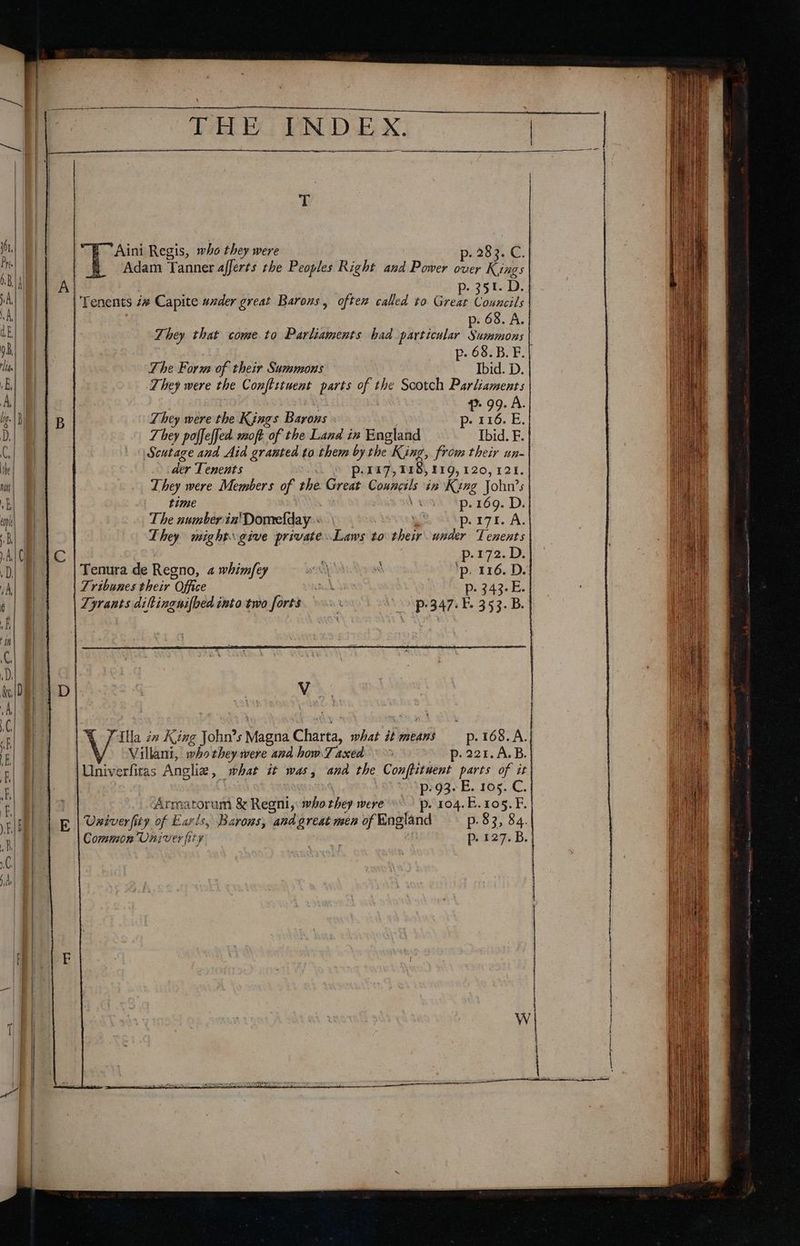 THE INDEX.
T
TAini Regis, who they were p. 283. C.
Adam Tanner aſſerts the Peoples Right and Power over Kings
A p. 351. D.
Tenents in Capite under great Barons, often called to Great Councils
p. 68. A.
They that come to Parliaments had particular Summons
p. 68. B. F.
The Form of their Summons Ibid. D.
They were the Conſtituent parts of the Scotch Parliaments
p. 99. A.
B They were the Kings Barons p. 116. E.
They poſſeſſed moſt of the Land in England Ibid. F.
Scutage and Aid granted to them by the King, from their un-
der Tenents p. 117, 118, 119, 120, 121.
They were Members of the Great Councils in King John's
time p. 169. D.
The number in Domeſday p. 171. A.
They might give private Laws to their under Tenents
C p. 172. D.
Tenura de Regno, a whimſey p. 116. D.
Tribunes their Office p. 343. E.
Tyrants diſtinguiſhed into two ſorts p. 347. F. 353. B.
D V
VIlla in King John's Magna Charta, what it means p. 168. A.
Villani, who they were and how Taxed p. 221. A. B.
Univerſitas Angliæ, what it was, and the Conſtituent parts of it
p. 93. E. 105. C.
Armatorum & Regni, who they were p. 104. E. 105. F.
E Univerſity of Earls, Barons, and great men of England p. 83, 84.
Common Univerſity p. 127. B.
F
W